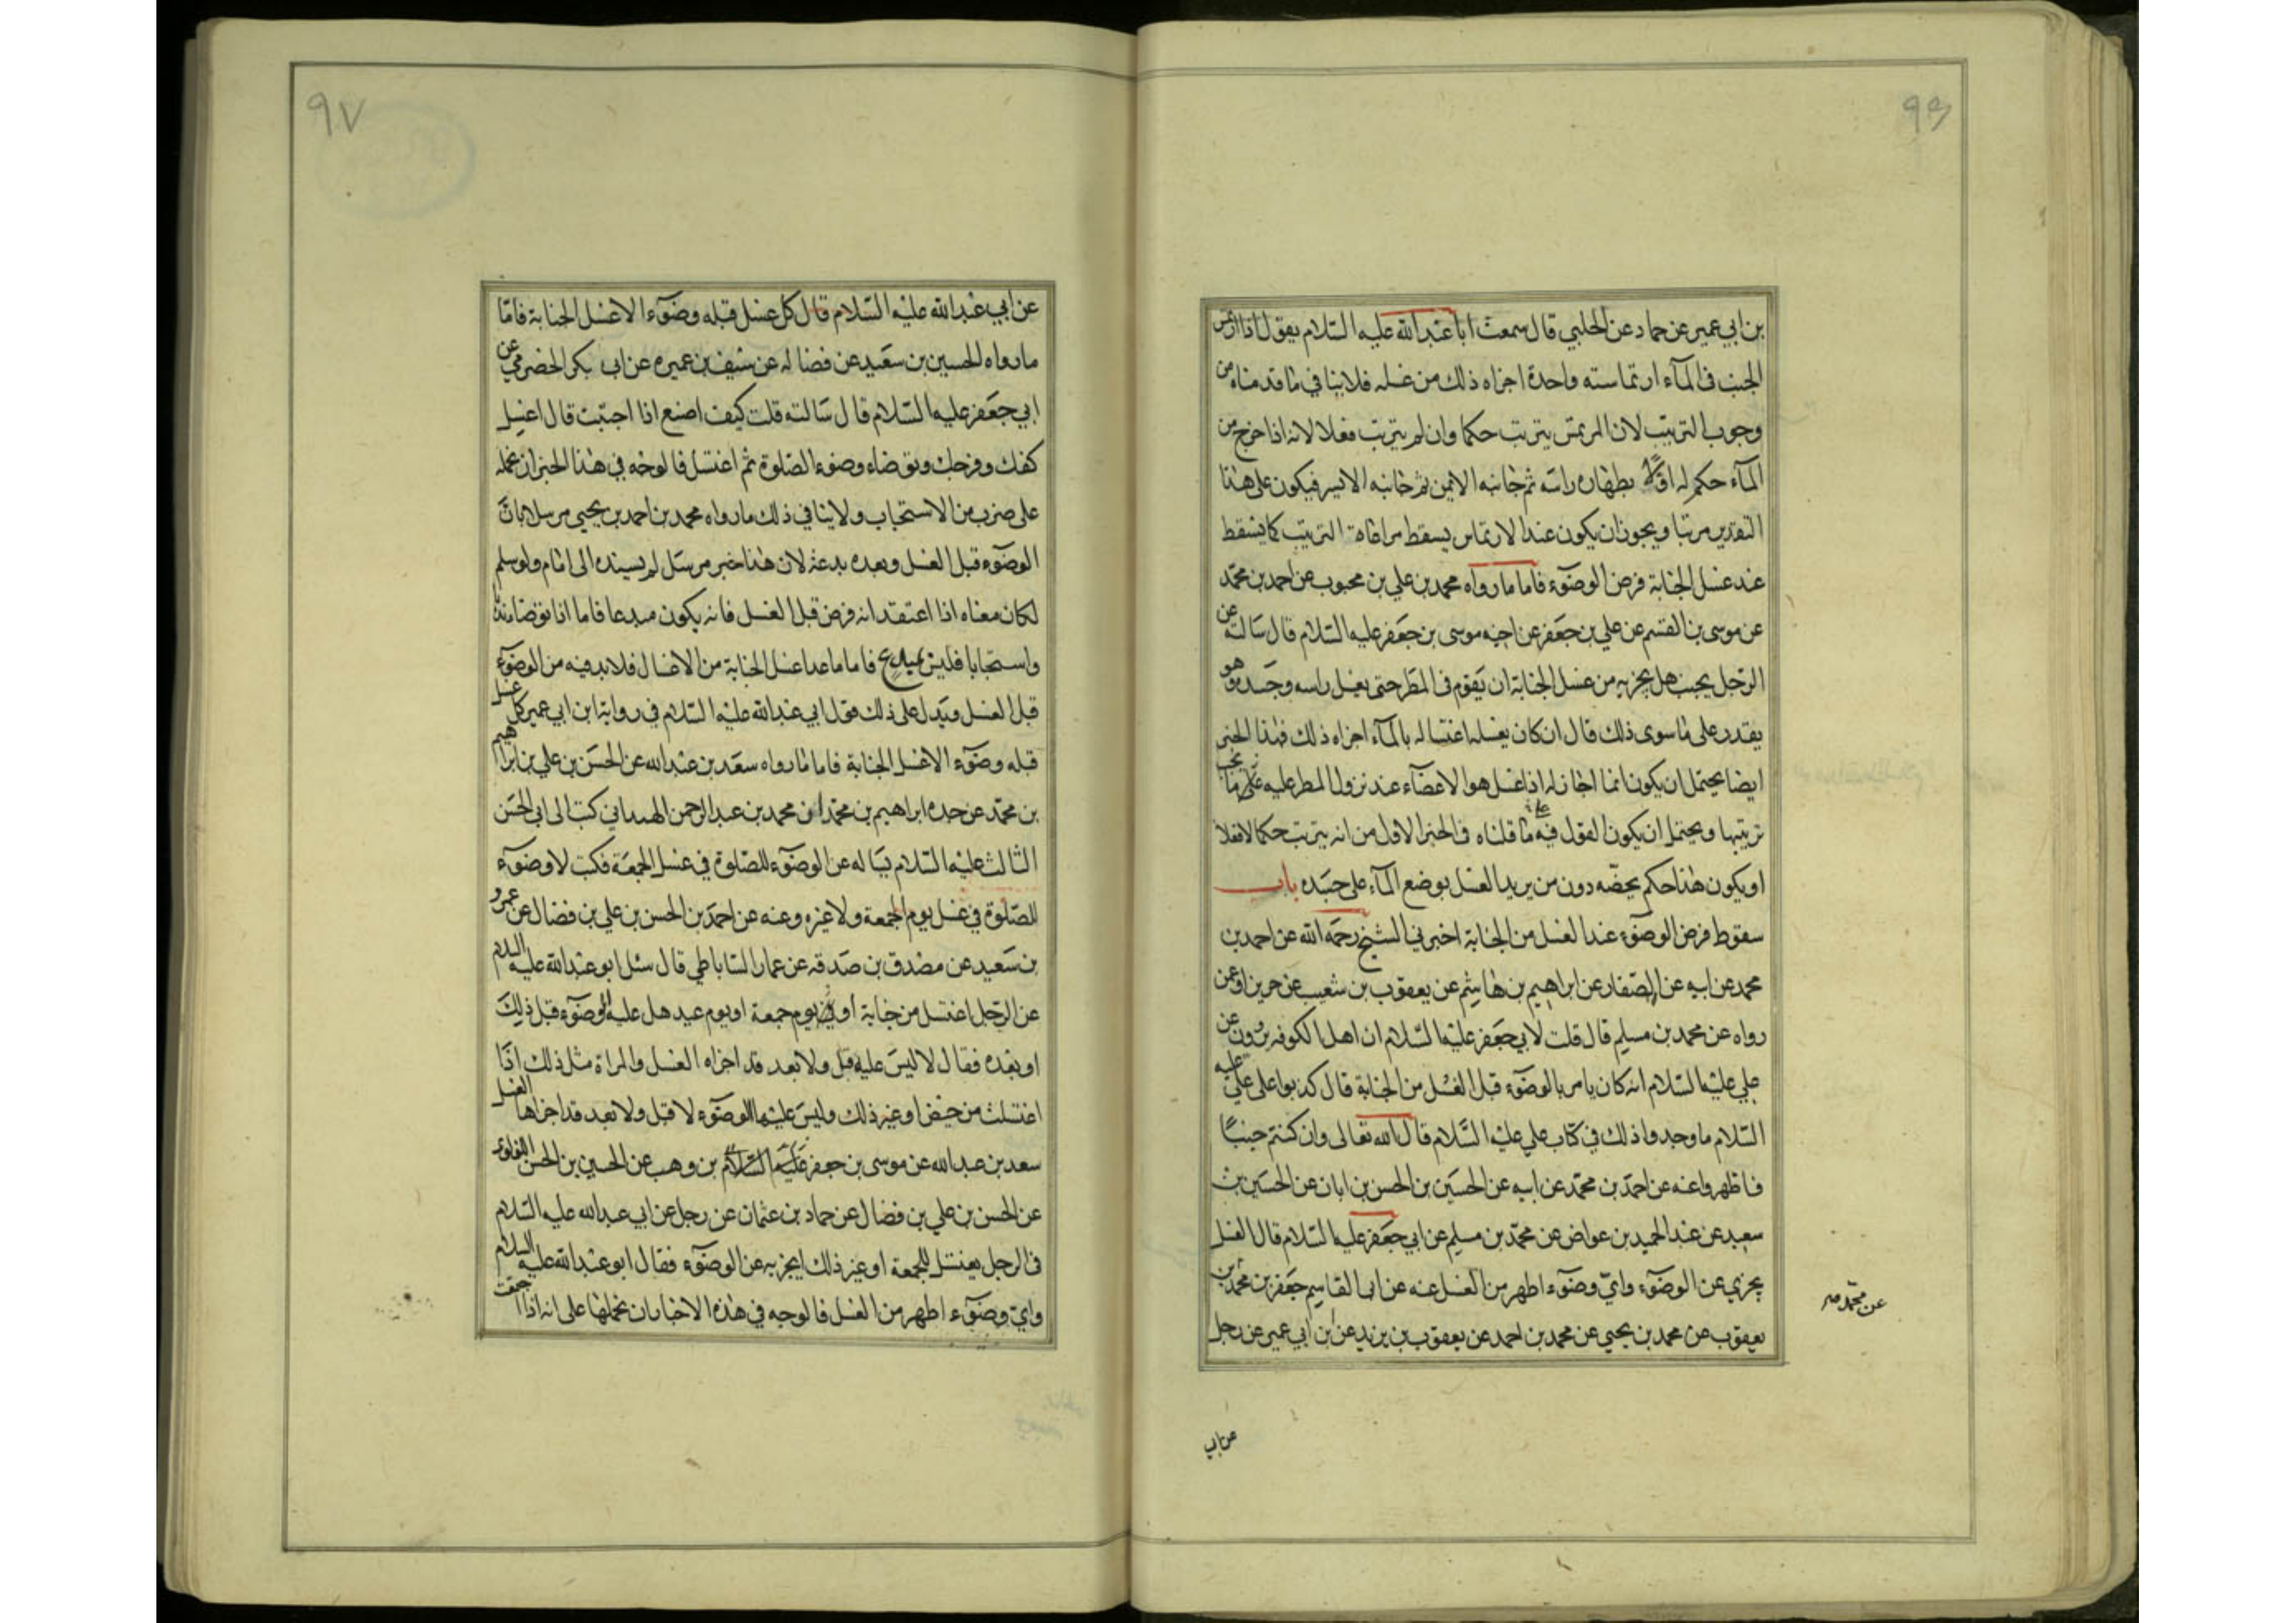 ٩٦
بن ابي عمير عن حماد عن الحلبي قال سمعت ابا عبدالله عليه السلام يقول اذا ارتمس
الجنب في المآء ارتماسته واحدة اجزاه ذلك من غسله فلا ينافي ما قدمناه من
وجوب الترتيب لان المرتمس يترتب حكما وان لم يترتب فعلا لانه اذا خرج من
المآء حكم له اولا بطهاره راسه ثم جانبه الايمن ثم جانبه الايسر فيكون على هذا
التقدير مرتبا ويجوز ان يكون عند الارتماس يسقط مراعاة الترتيب كما يسقط
عند غسل الجنابة فرض الوضوء فاما ما رواه محمد بن علي بن محبوب عن احمد بن محمد
عن موسى بن القسم عن علي بن جعفر عن اخيه موسى بن جعفر عليه السلام قال سالته عن
الرجل يجنب هل يجزيه من غسل الجنابة ان يقوم في المطر حتى يغسل راسه وجسده وهو
يقدر على ما سوى ذلك قال ان كان يغسله اغتساله بالمآء اجزاه ذلك فهذا الخبر
ايضا يحتمل ان يكون انما اجاز له اذا غسل هو الاعضآء عند نزول المطر عليه على ما يجب
ترتيبها ويحتمل ان يكون القول فيه ما قلناه في الخبر الاول من انه يترتب حكما لا فعلا
او يكون هذا حكم يخصه دون من يريد الغسل بوضع المآء على جسده باب
سقوط فرض الوضوء عند الغسل من الجنابة اخبرني الشيخ رحمه الله عن احمد بن
محمد عن ابيه عن الصفار عن ابراهيم بن هاشم عن يعقوب بن شعيب عن حريز او عمن
رواه عن محمد بن مسلم قال قلت لابي جعفر عليه السلام ان اهل الكوفه يروون عن
علي عليه السلام انه كان يامر بالوضوء قبل الغسل من الجنابة قال كذبوا على علي عليه
السلام ما وجدوا ذلك في كتاب علي عليه السلام قال الله تعالى وان كنتم جنبا
فاطهروا عنه عن احمد بن محمد عن ابيه عن الحسين بن الحسن بن ابان عن الحسين بن
سعيد عن عبد الحميد بن عواض عن محمد بن مسلم عن ابي جعفر عليه السلام قال الغسل
يجزي عن الوضوء واي وضوء اطهر من الغسل عنه عن ابي القاسم جعفر بن محمد بن
يعقوب عن محمد بن يحيى عن محمد بن احمد عن يعقوب بن يزيد عن ابن ابي عمير عن رجل
عن محمد
عن ابي
٩٧
عن ابي عبدالله عليه السلام قال كل غسل قبله وضوء الا غسل الجنابة فاما
ما رواه الحسين بن سعيد عن فضاله عن سيف بن عميره عن ابي بكر الحضرمي عن
ابي جعفر عليه السلام قال سالته قلت كيف اصنع اذا اجنبت قال اغسل
كفك وفرجك وتوضاء وضوء الصلوة ثم اغتسل فالوجه في هذا الخبر ان نحمله
على ضرب من الاستحباب ولا ينافي ذلك ما رواه محمد بن احمد بن يحيى مرسلا بان
الوضوء قبل الغسل وبعده بدعة لان هذا خبر مرسل لم يسنده الى امام ولو سلم
لكان معناه اذا اعتقد انه فرض قبل الغسل فانه يكون مبدعا فاما اذا توضا ندبا
واستحبابا فليس بمبدع فاما ما عدا غسل الجنابة من الاغسال فلا بد فيه من الوضوء
قبل الغسل ويدل على ذلك قول ابي عبدالله عليه السلام في رواية ابن ابي عمير كل غسل
قبله وضوء الا غسل الجنابة فاما ما رواه سعد بن عبدالله عن الحسن بن علي بن ابراهيم
بن محمد عن جده ابراهيم بن محمد ان محمد بن عبدالرحمن الهمداني كتب الى ابي الحسن
الثالث عليه السلام يساله عن الوضوء للصلوة في غسل الجمعة فكتب لا وضوء
للصلوة في غسل يوم الجمعة ولا غيره وعنه عن احمد بن الحسن بن علي بن فضال عن عمرو
بن سعيد عن مصدق بن صدقه عن عمار الساباطي قال سئل ابو عبدالله عليه السلام
عن الرجل اغتسل من جنابة او يوم جمعة او يوم عيد هل عليه الوضوء قبل ذلك
او بعده فقال لا ليس عليه قبل ولا بعد قد اجزاه الغسل والمراة مثل ذلك اذا
اغتسلت من حيض او غير ذلك وليس عليها الوضوء لا قبل ولا بعد قد اجزاها الغسل
سعد بن عبدالله عن موسى بن جعفر عليهم السلام بن وهب عن الحسين بن الحسن اللؤلؤي
عن الحسن بن علي بن فضال عن حماد بن عثمان عن رجل عن ابي عبدالله عليه السلام
في الرجل يغتسل للجمعة او غير ذلك ايجزيه عن الوضوء فقال ابو عبدالله عليه السلام
واي وضوء اطهر من الغسل فالوجه في هذه الاخبار ان نحملها على انه اذا اجتمعت